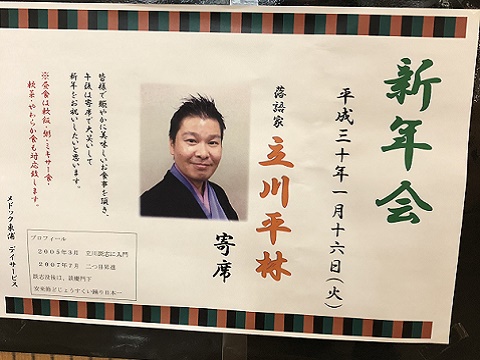 新年会
平成三十年一月十六日(火)
落語家 立川平林 寄席
皆様で賑やかに美味しいお食事を頂き、
午後は寄席で大笑いして
新年をお祝いしたいと思います。
※昼食は軟飯・粥・ミキサー食・
軟菜・やわらか食も対応致します。
メドック東浦 デイサービス
プロフィール
2005年3月 立川談志に入門
2007年7月 二つ目昇進
談志没後は、談慶門下
安来節どじょうすくい踊り日本一